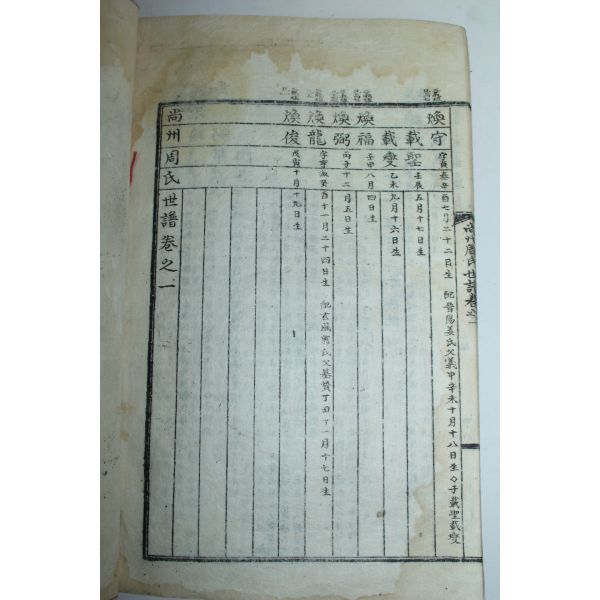 煥守 字寅泰辛酉七月二十二日生 配晋陽姜氏父義甲辛未十月十八日生○子載聖載燮
載聖 壬辰五月十七日生
載燮 乙未九月十六日生
煥福 壬申八月四日生
煥弼 丙子十二月五日生
煥龍 字守淑癸酉十一月二十四日生 配玄風郭氏父基贊丁丑十一月十七日生
煥俊 戊寅十月十九日生
尚州周氏世譜卷之一
尚州周氏世譜卷之一